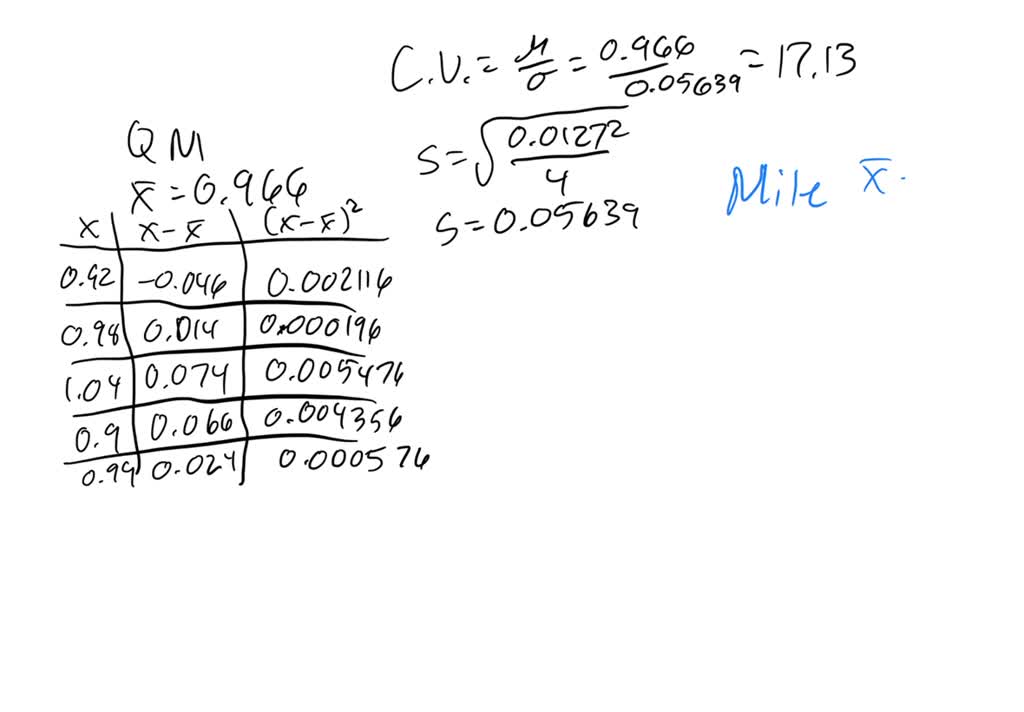 C.V. = μ/σ = 0.966/0.05639 = 17.13
QM
x̄ = 0.966
s = √(0.01272/4)
s = 0.05639
Mile x̄.
x | x - x̄ | (x - x̄)²
0.92 | -0.046 | 0.002116
0.98 | 0.014 | 0.000196
1.04 | 0.074 | 0.005476
0.9 | 0.066 | 0.004356
0.99 | 0.024 | 0.000576